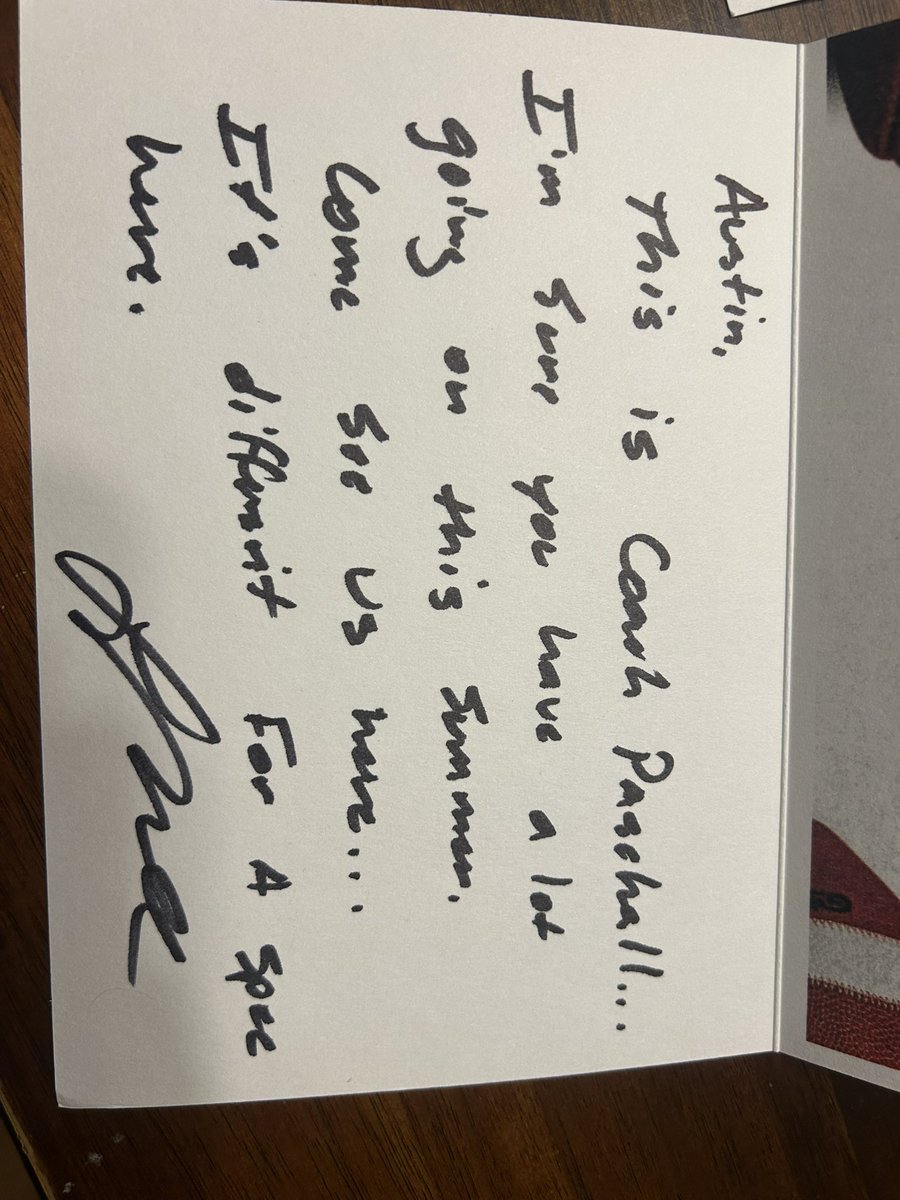 Austin,
This is Coach Paschall...
I'm sure you have a lot
going on this summer.
Come see us here...
It's different For A spec
here.